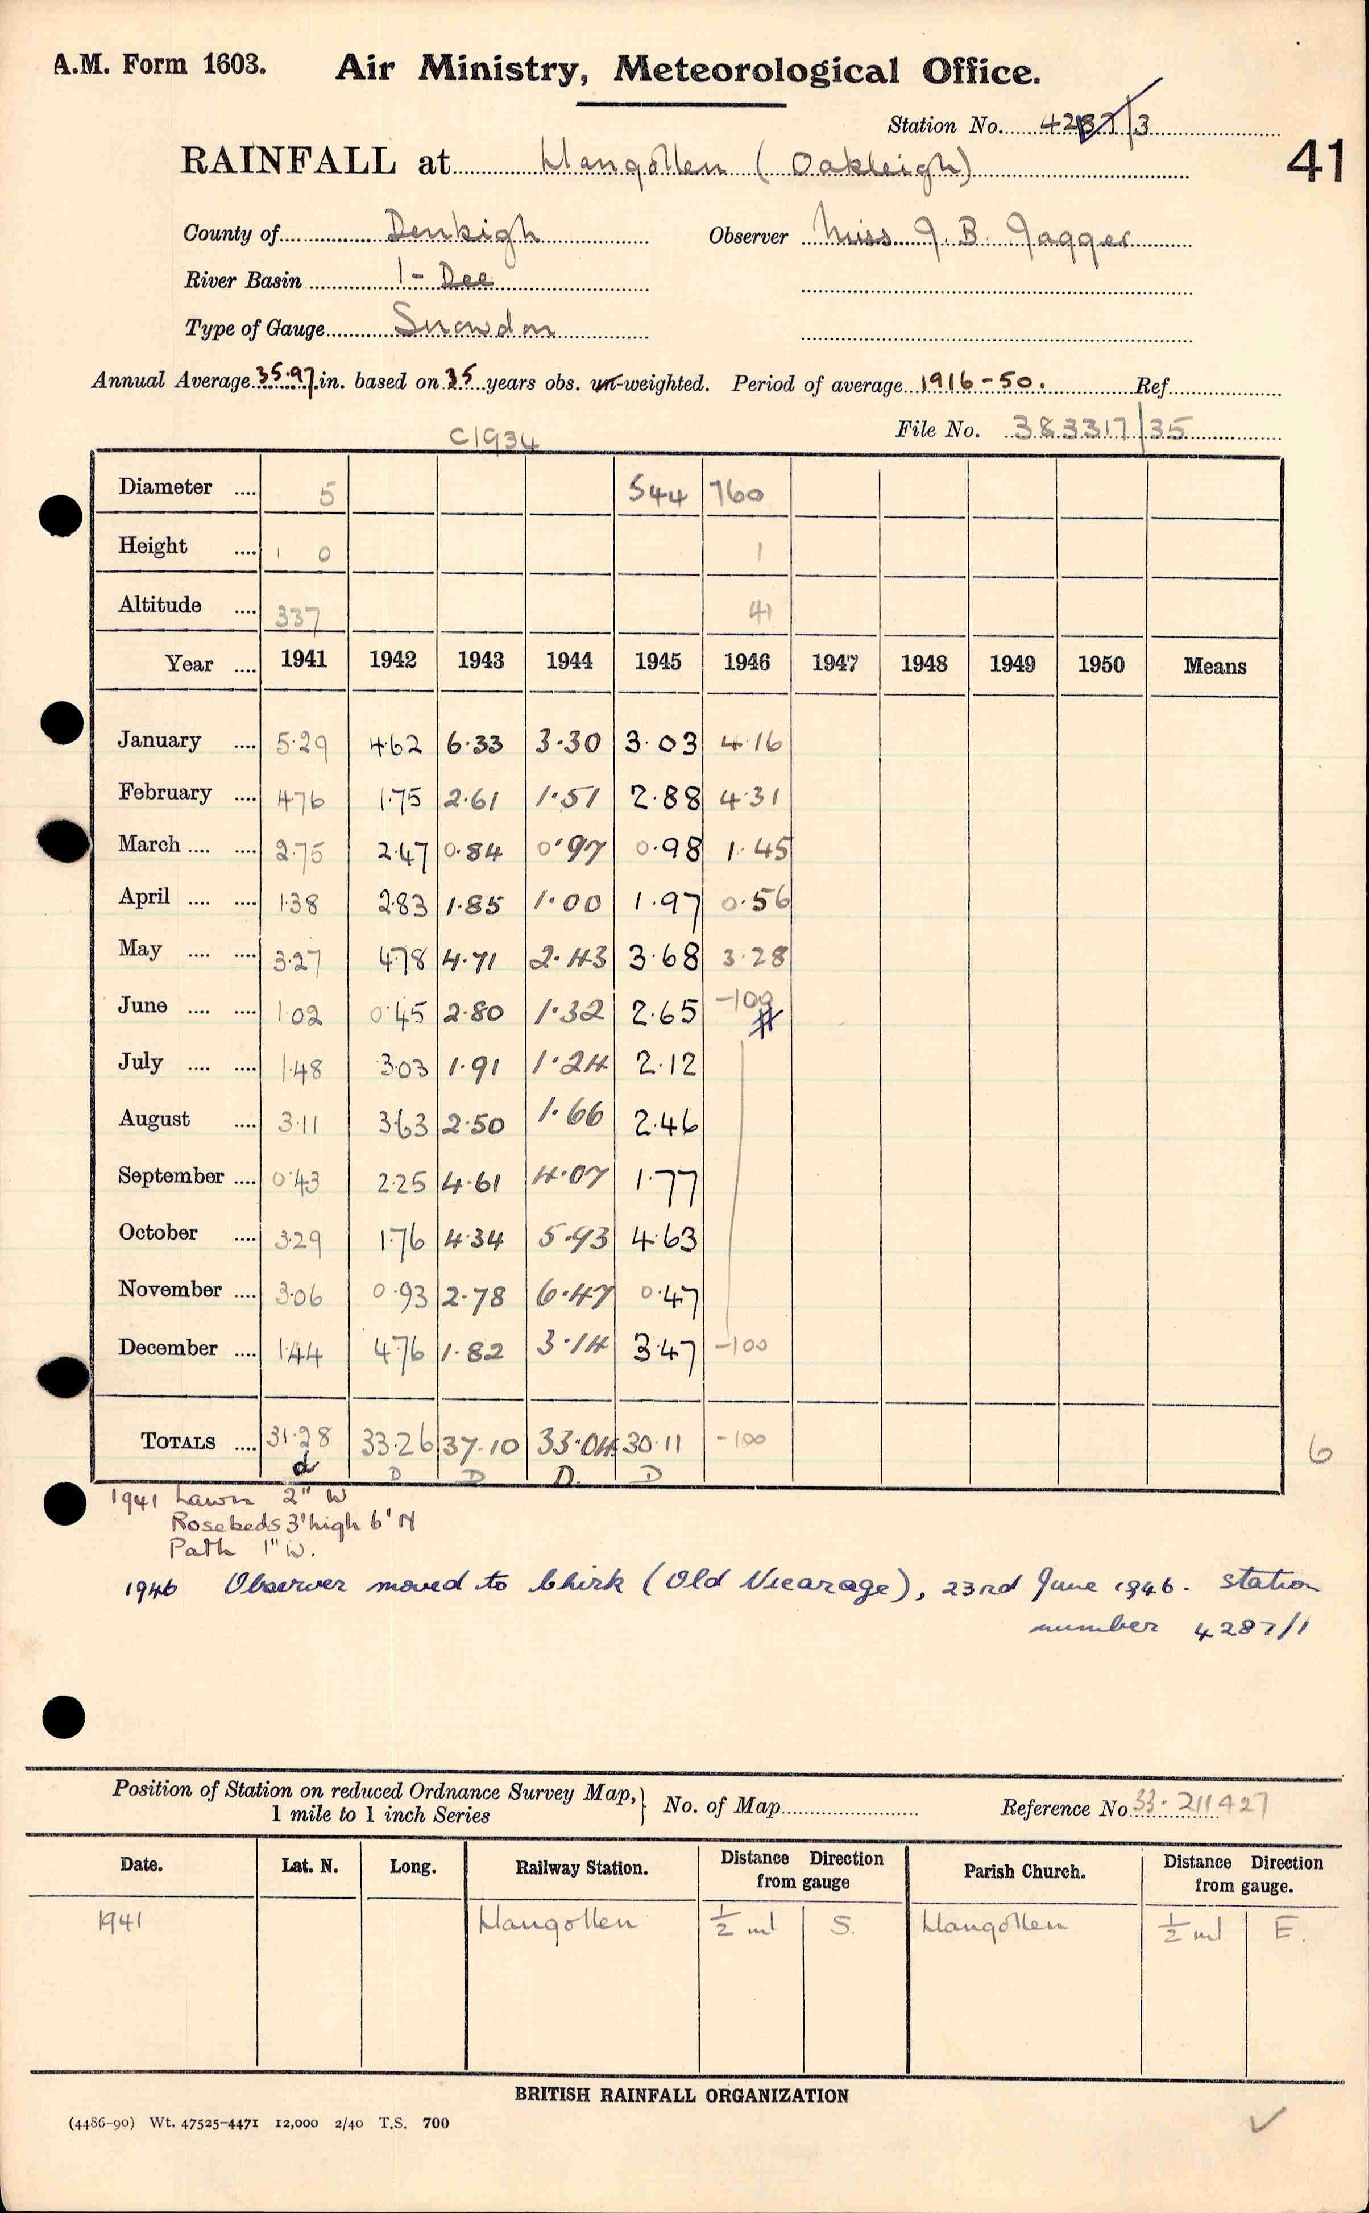 A.M. Form 1603. Air Ministry, Meteorological Office.
Station No. 4287/3
41
RAINFALL at Llangollen (Oakleigh)
County of Denbigh Observer Miss J. B. Jagger
River Basin 1 - Dee
Type of Gauge Snowdon
Annual Average 35.97 in. based on 35 years obs. un-weighted. Period of average 1916-50. Ref
File No. 383317/35
C1934
Diameter .... 5 544 760
Height .... 1 0 1
Altitude .... 337 41
Year .... 1941 1942 1943 1944 1945 1946 1947 1948 1949 1950 Means
January .... 5.29 4.62 6.33 3.30 3.03 4.16
February .... 4.76 1.75 2.61 1.51 2.88 4.31
March .... .... 2.75 2.47 0.84 0.97 0.98 1.45
April .... .... 1.38 2.83 1.85 1.00 1.97 0.56
May .... .... 3.27 4.78 4.71 2.43 3.68 3.28
June .... .... 1.02 0.45 2.80 1.32 2.65 -100 #
July .... .... 1.48 3.03 1.91 1.24 2.12
August .... 3.11 3.63 2.50 1.66 2.46
September .... 0.43 2.25 4.61 4.07 1.77
October .... 3.29 1.76 4.34 5.93 4.63
November .... 3.06 0.93 2.78 6.47 0.47
December .... 1.44 4.76 1.82 3.14 3.47 -100
TOTALS .... 31.28 33.26 37.10 33.04 30.11 -100
d D D D. D
6
1941 Lawn 2" W
Rosebeds 3' high 6' N
Path 1" W.
1946 Observer moved to Chirk (Old Vicarage), 23rd June 1946. Station
number 4287/1
Position of Station on reduced Ordnance Survey Map, 1 mile to 1 inch Series } No. of Map Reference No 33. 211427
Date. Lat. N. Long. Railway Station. Distance Direction from gauge Parish Church. Distance Direction from gauge.
1941 Llangollen ½ ml S. Llangollen ½ ml E.
BRITISH RAINFALL ORGANIZATION
(4486-90) Wt. 47525-4471 12,000 2/40 T.S. 700